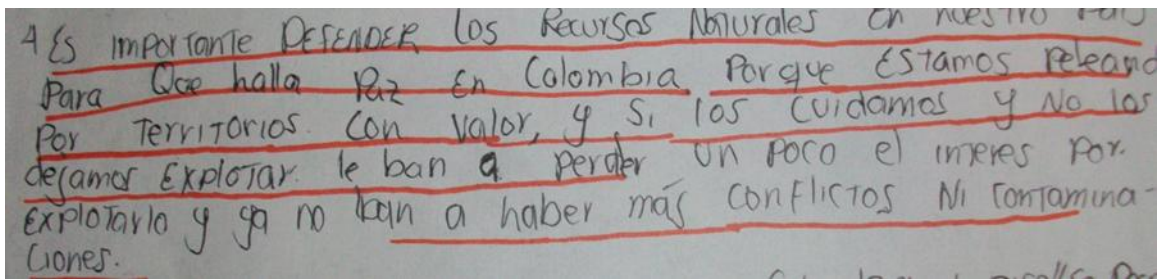 4 Es importante DEFENDER los Recursos Naturales en nuestro País
Para Que halla Paz En Colombia Porque Estamos peleand
Por Territorios. Con valor, y si los cuidamos y No los
dejamos Explotar. le ban a perder un poco el interes Por.
Explotarlo y ya no ban a haber más conflictos Ni contamina-
ciones.